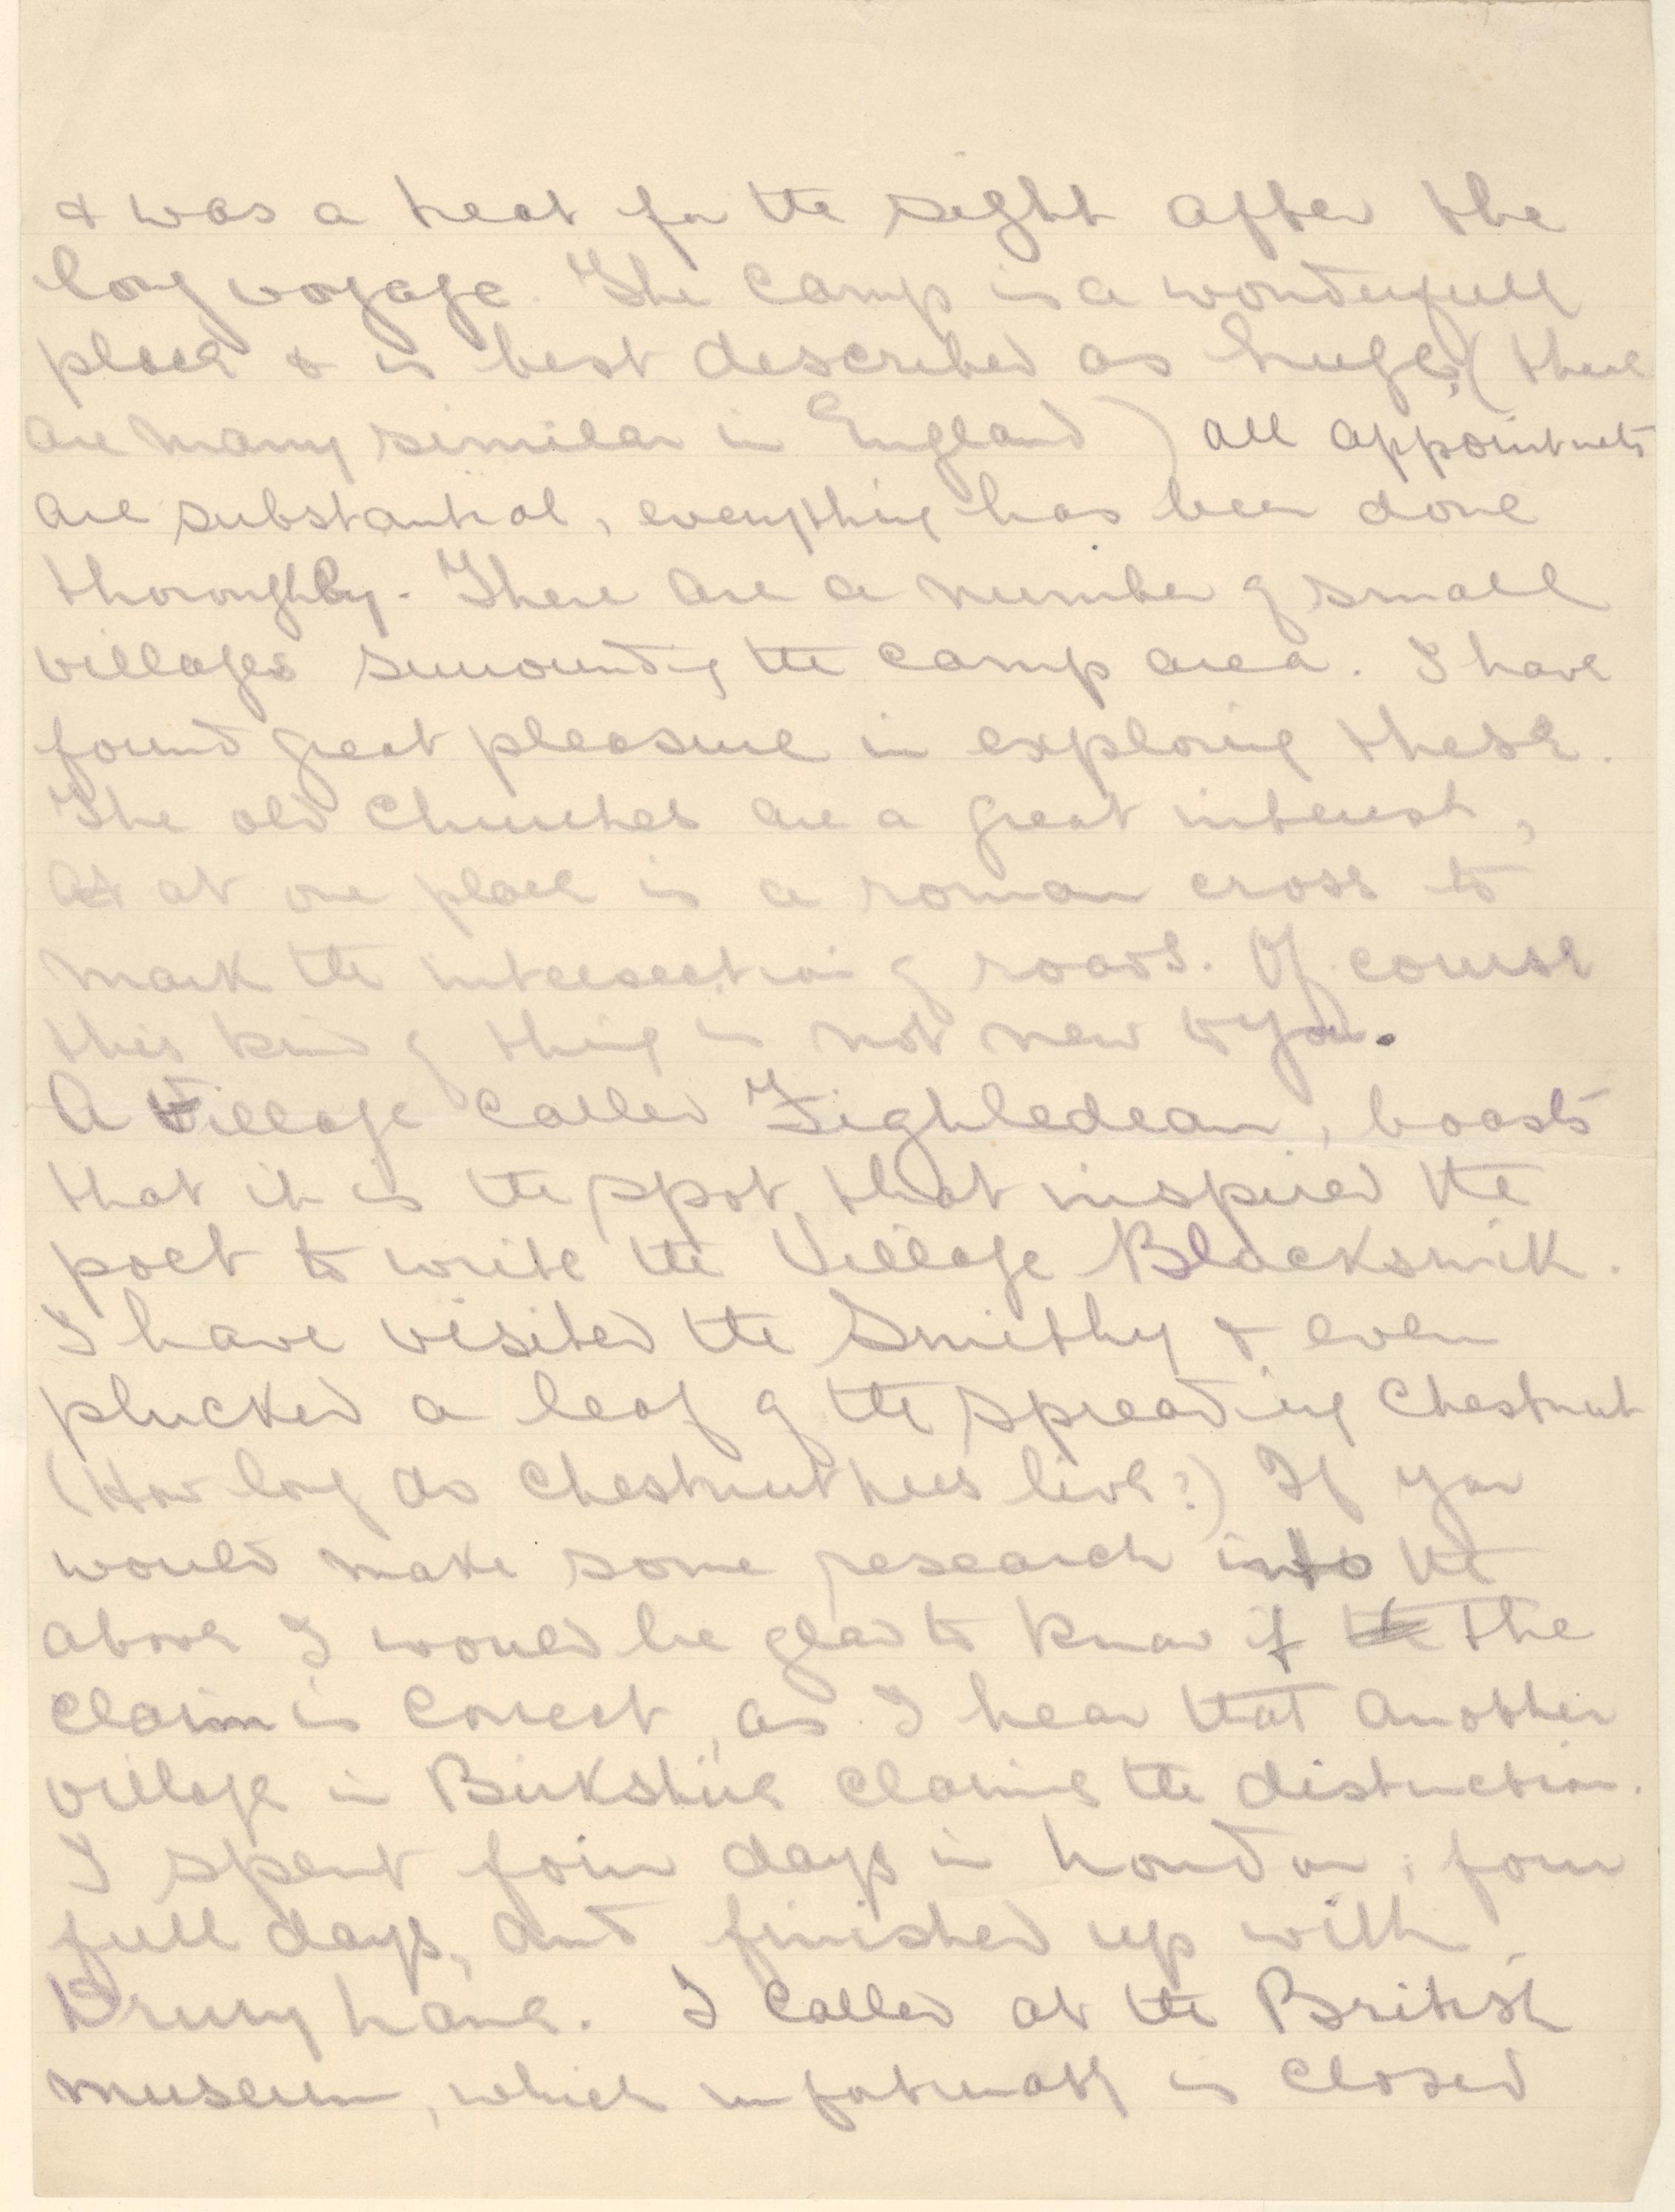 & was a treat for the sight after the
long voyage. The camp is a wonderfull
place & is best described as huge, (there
are many similar in England) all appointmets
are substantial, everything has been done
thoroughly. There are a number of small
villages surrounding the camp area. I have
found great pleasure in exploring these.
The old churches are a great interest,
at one place is a roman cross to
mark the intersection of roads. Of course
this kind of thing is not new to you.
A Village called Fighledean, boasts
that it is the spot that inspired the
poet to write the Village Blacksmith.
I have visited the Smithy & even
plucked a leaf of the spreading Chestnut
(How long do Chestnut trees live?) If you
would make some research into the
above I would be glad to know if the the
claim is correct, as I hear that another
village in Birkshire claims the distinction.
I spent four days in London; four
full days, and finished up with
Drury Lane. I called at the British
museum, which unfortunatly is closed